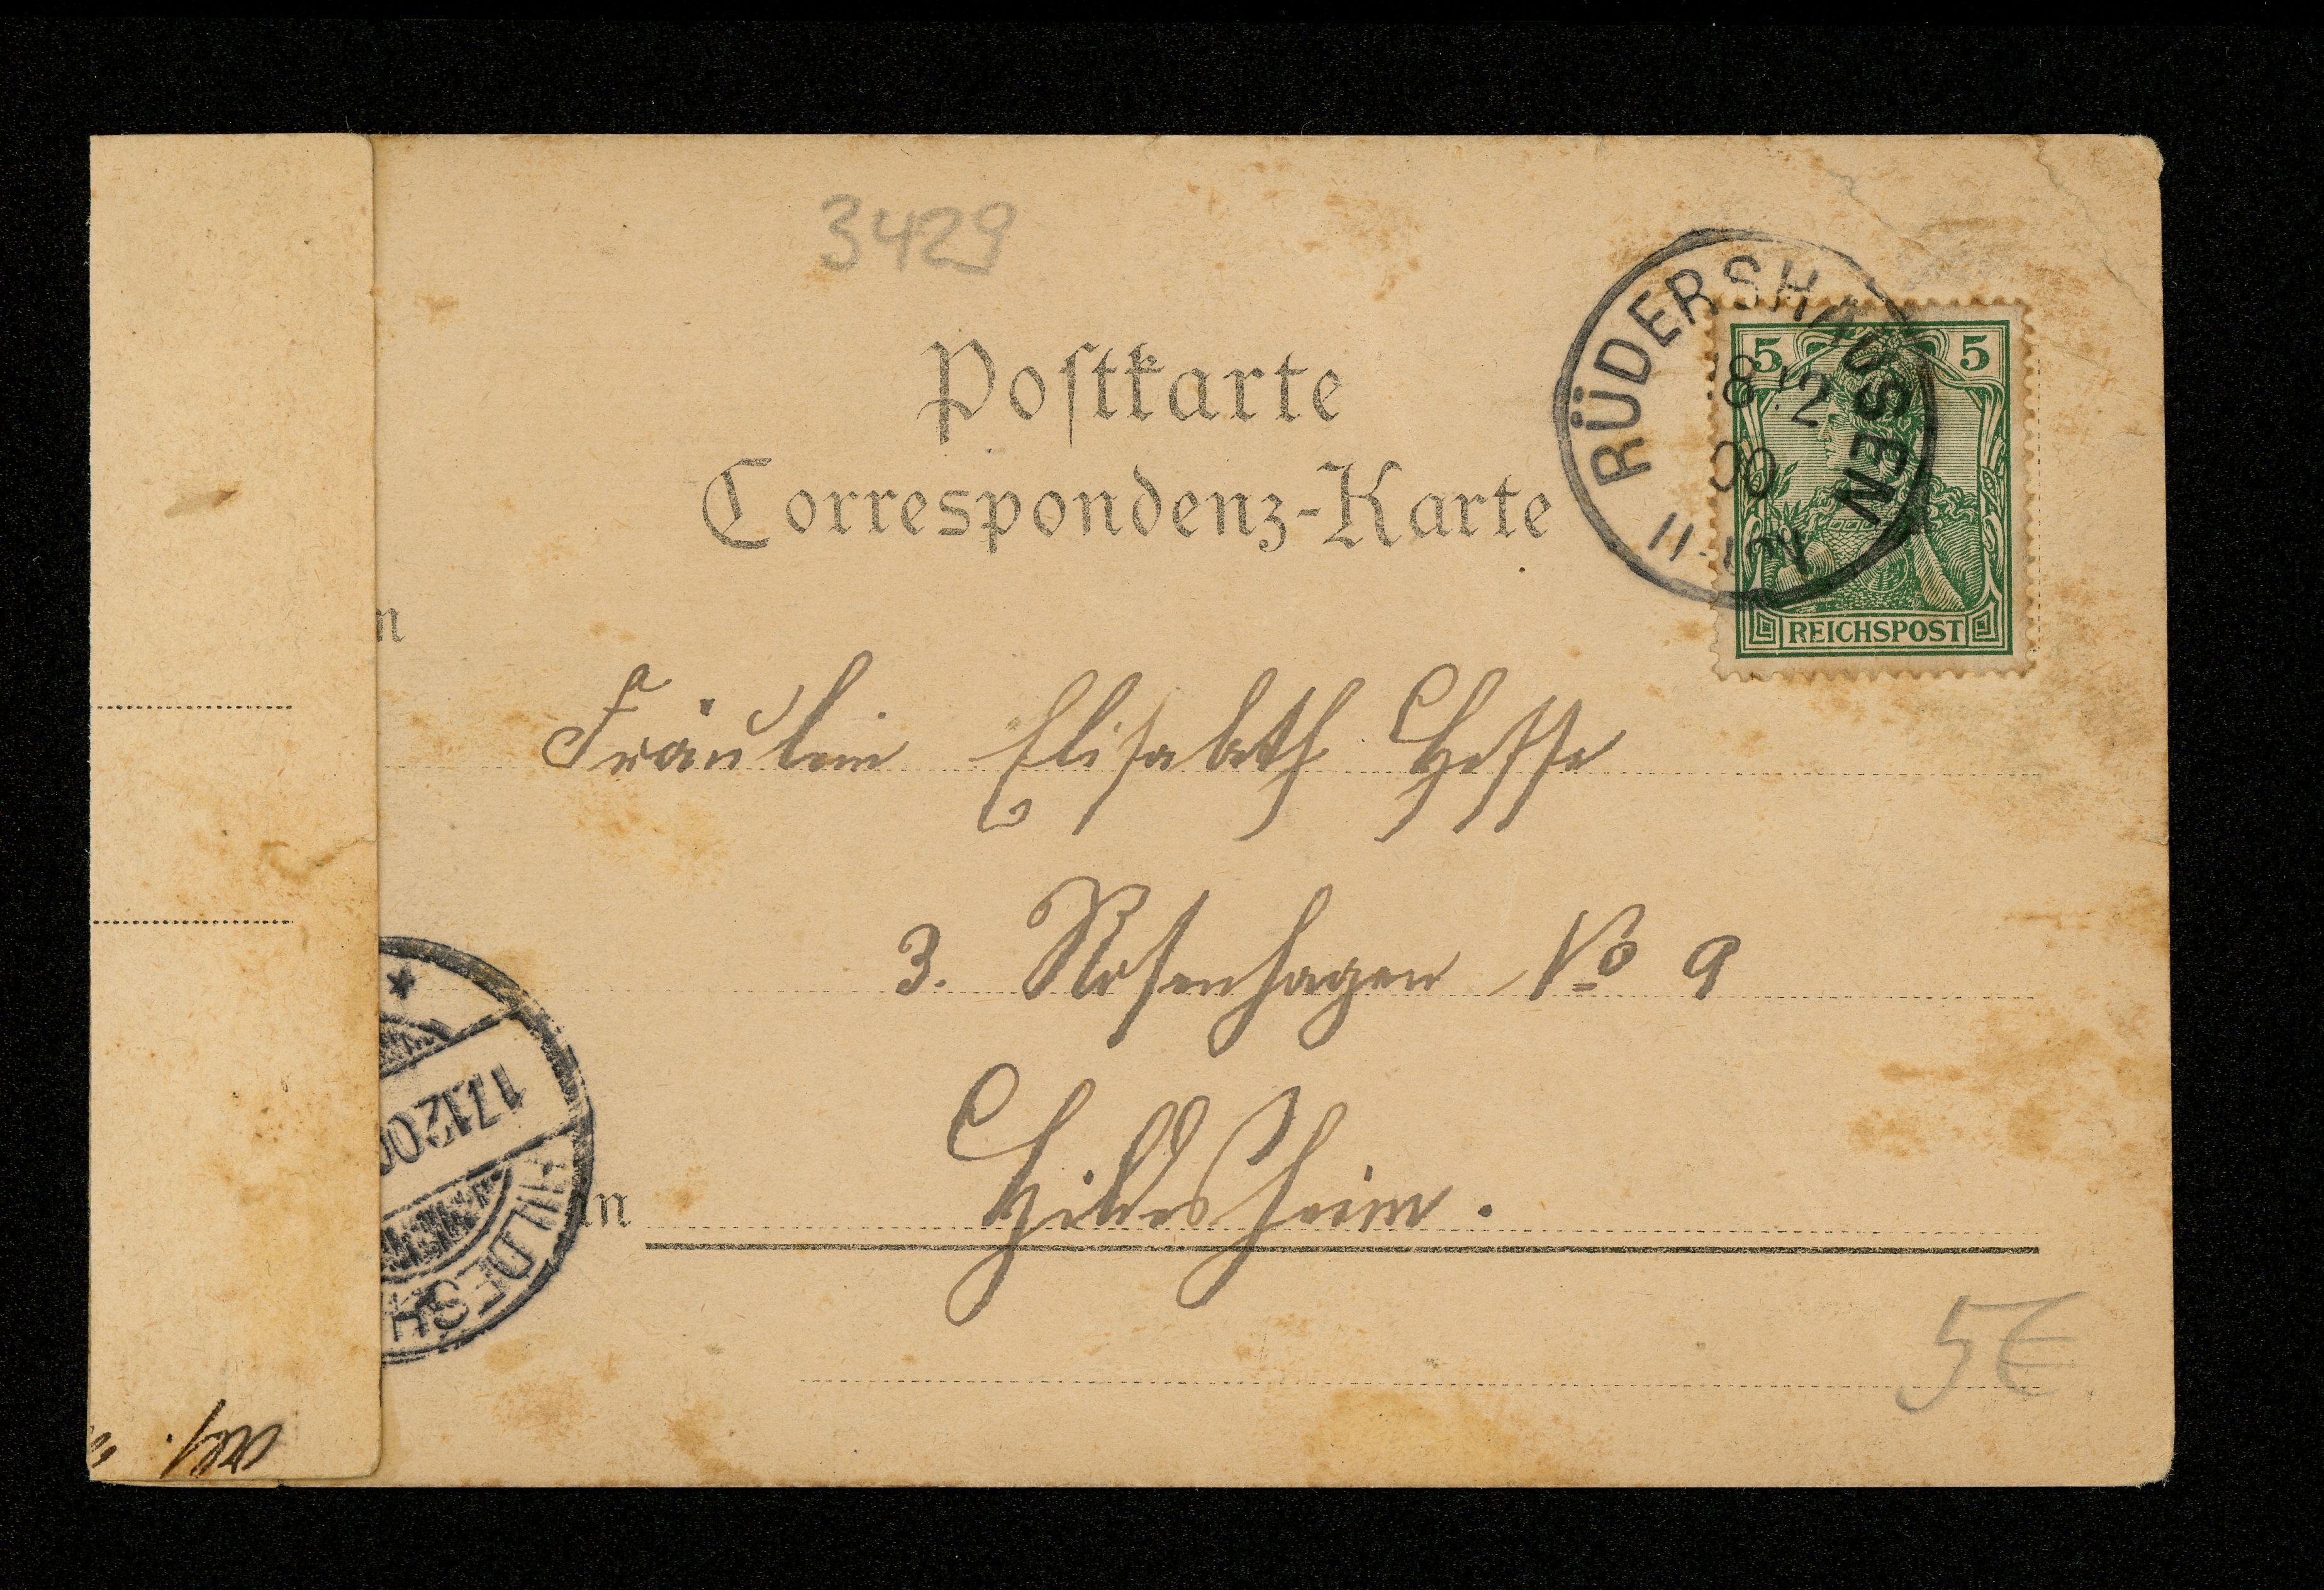 3429
Postkarte
Correspondenz-Karte
RÜDERSHAUSEN
00
5 5
REICHSPOST
n
Fräulein Elisabeth Hesse
3. Rosenhagen No 9
17.12.00
HILDESH
In
Hildesheim.
5€